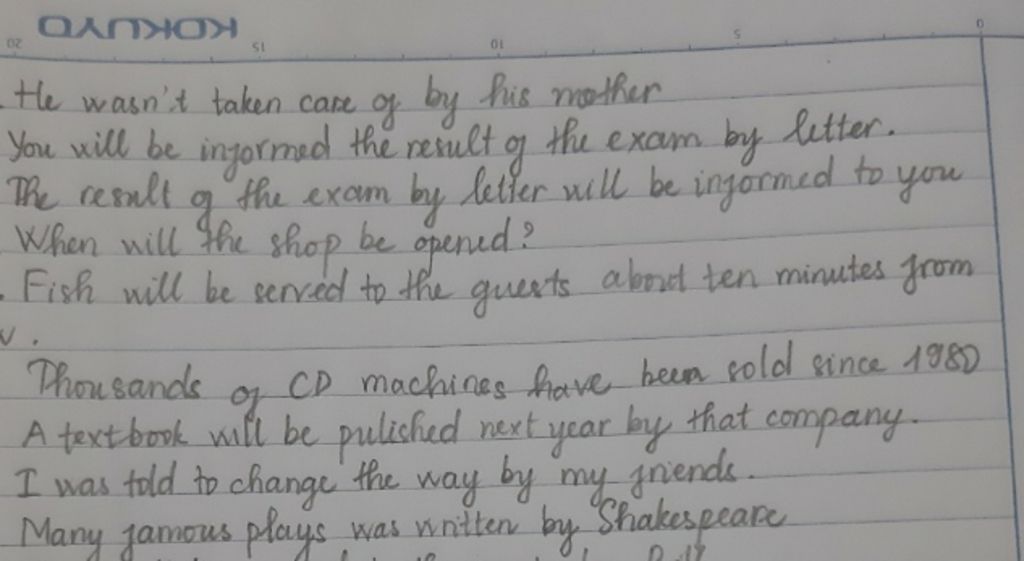 KOKUYO
20 15 10 5 0
. He wasn't taken care of by his mother
You will be informed the result of the exam by letter.
The result of the exam by letter will be informed to you
When will the shop be opened?
. Fish will be served to the guests about ten minutes from
.
Thousands of CD machines have been sold since 1980
A textbook will be pulished next year by that company.
I was told to change the way by my friends.
Many famous plays was written by Shakespeare